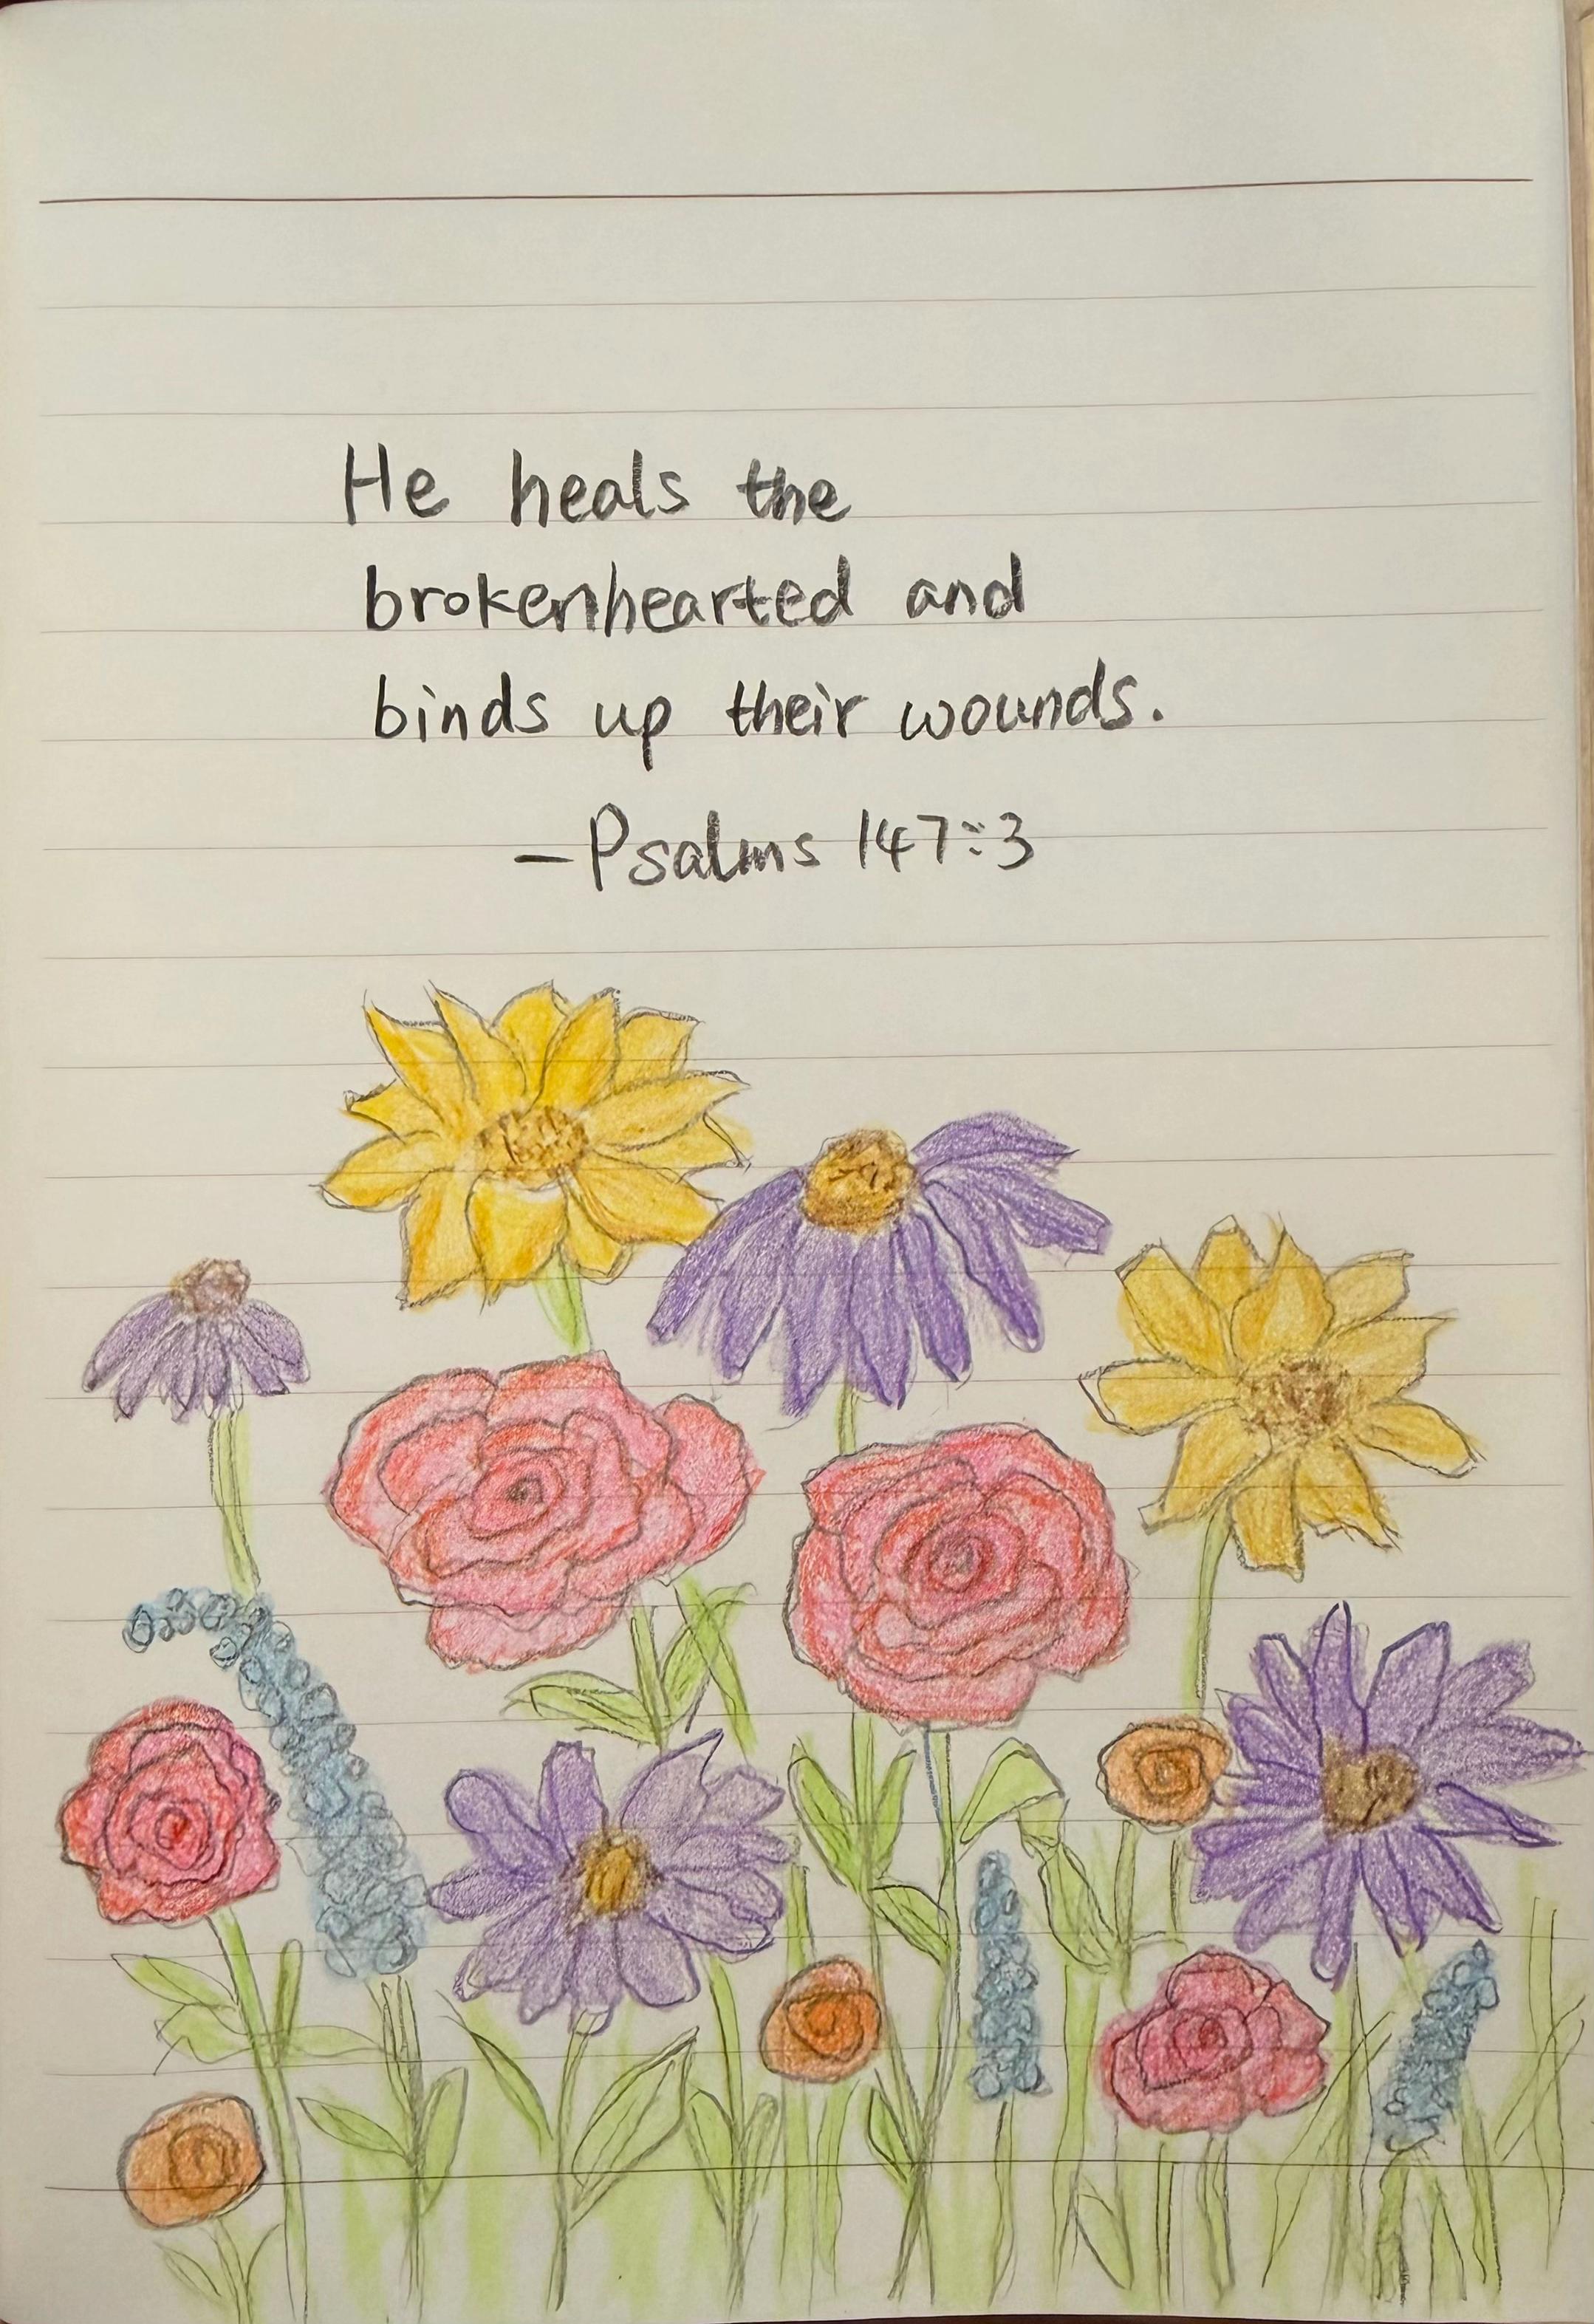 He heals the
brokenhearted and
binds up their wounds.
—Psalms 147:3